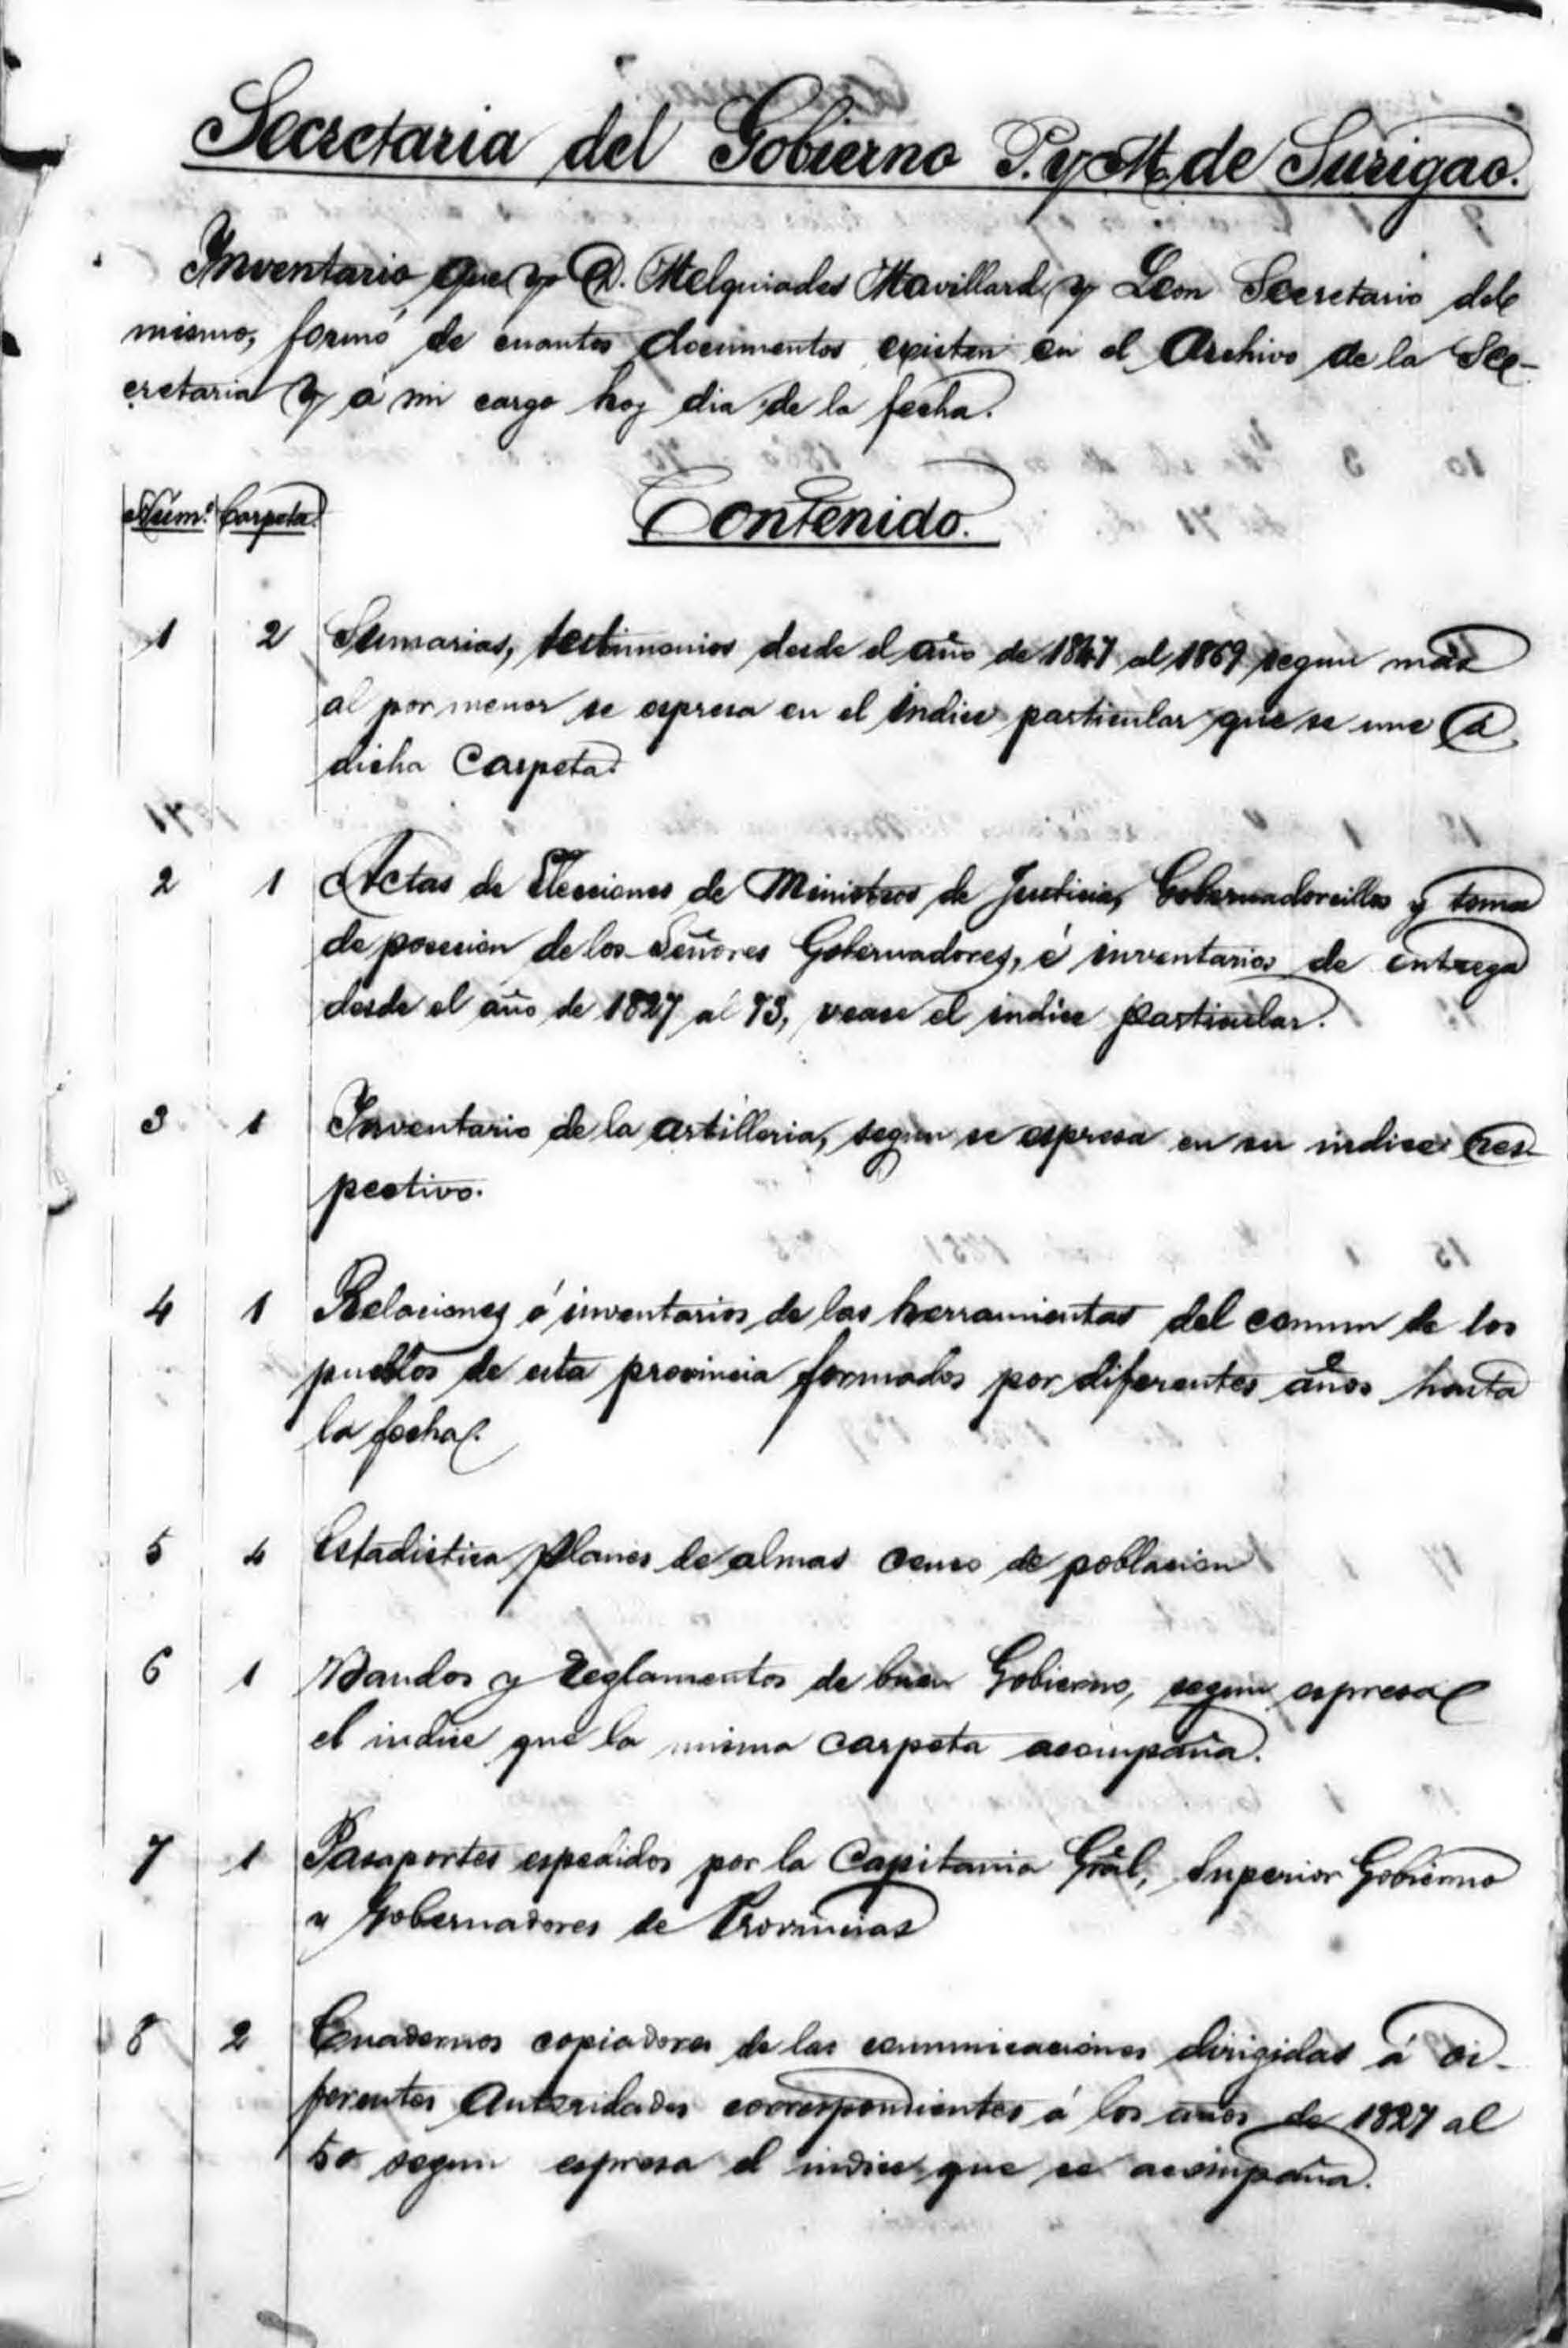 Secretaria del Gobierno P. y M. de Surigao.
Inventario que yo D. Melquiades Mavillard y Leon Secretario del
mismo, formó de cuantos documentos existen en el Archivo de la Sec-
cretaria y á mi cargo hoy dia de la fecha.
Núm.º Carpeta.
Contenido.
1 2 Sumarias, testimonios desde el año de 1847 al 1869 segun más
al por menor se espresa en el indice particular que se une á
dicha Carpeta.
2 1 Actas de Elecciones de Ministros de Justicia, Gobernadorcillos y toma
de posecion de los Señores Gobernadores, é inventarios de entrega
desde el año de 1827 al 73, vease el indice particular.
3 1 Inventario de la artilleria, segun se espresa en su indice res-
pectivo.
4 1 Relaciones é inventarios de las herramientas del comun de los
pueblos de esta provincia formados por diferentes años hasta
la fecha.
5 4 Estadistica planes de almas censo de poblacion
6 1 Bandos y reglamentos de buen Gobierno, segun espresa
el indice que la misma carpeta acompaña.
7 1 Pasaportes espedidos por la Capitania Gral, Superior Gobierno
y Gobernadores de Provincias
8 2 Cuadernos copiadores de las comunicaciones dirigidas á di-
ferentes Autoridades correspondientes á los años de 1827 al
50 segun espresa el indice que se acompaña.